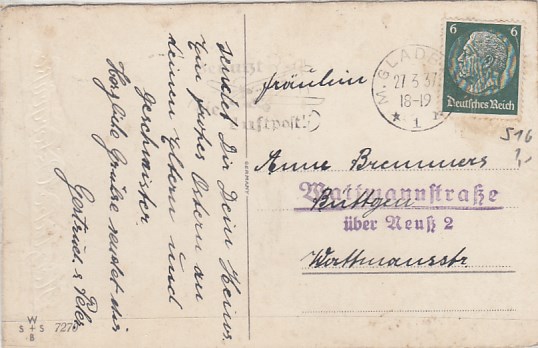 sendet Dir Dein Heinz.
Ein frohes Ostern an
deinen Eltern und
Geschwister.
Herzliche Grüße sendet dir
Gertrud & Peter
W
S + S 7270
B
GERMANY
Luftpost!
M.GLADB
27.3.37
18-19
* 1
6 6
Deutsches Reich
516
Fräulein
Anne Bremmers
Wattmannstraße
Büttgen
über Neuß 2
Wattmannstr.